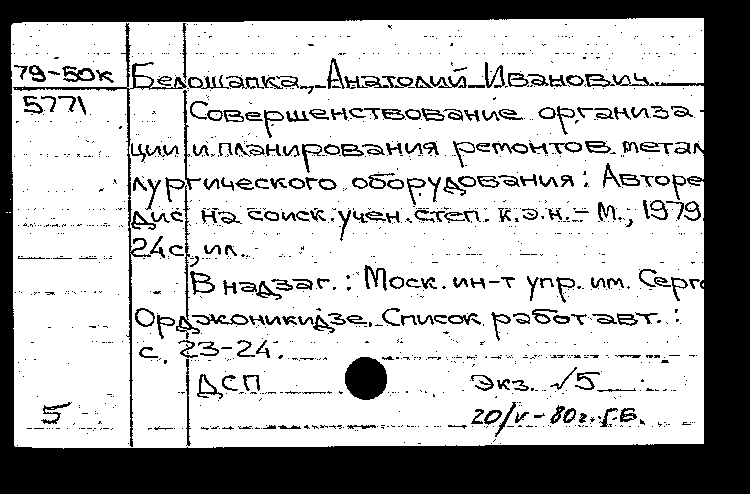 79-50к Белошапка, Анатолий Иванович
5771 Совершенствование организа-
ции и планирования ремонтов метал
лургического оборудования: Авторе
дис. на соиск. учен. степ. к.э.н. - М., 1979.
24с., ил.
В надзаг.: Моск. ин-т упр. им. Серго
Орджоникидзе. Список работ авт.:
с. 23-24.
ДСП Экз. √5
5 20/V-80г. Г.Б.